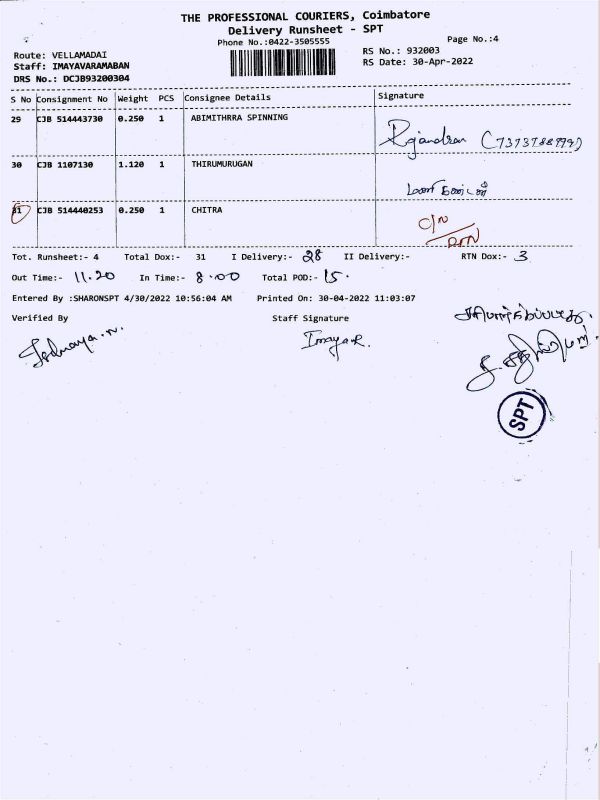 THE PROFESSIONAL COURIERS, Coimbatore
Delivery Runsheet - SPT
Phone No.:0422-3505555
Page No.:4
Route: VELLAMADAI
RS No.: 932003
Staff: IMAYAVARAMABAN
RS Date: 30-Apr-2022
DRS No.: DCJB93200304
S No Consignment No Weight PCS Consignee Details Signature
29 CJB 514443730 0.250 1 ABIMITHRRA SPINNING
30 CJB 1107130 1.120 1 THIRUMURUGAN
31 CJB 514440253 0.250 1 CHITRA
C/N
RTN
Tot. Runsheet:- 4 Total Dox:- 31 I Delivery:- 28 II Delivery:- RTN Dox:- 3
Out Time:- 11.20 In Time:- 8.00 Total POD:- 15.
Entered By :SHARONSPT 4/30/2022 10:56:04 AM Printed On: 30-04-2022 11:03:07
Verified By Staff Signature
SPT